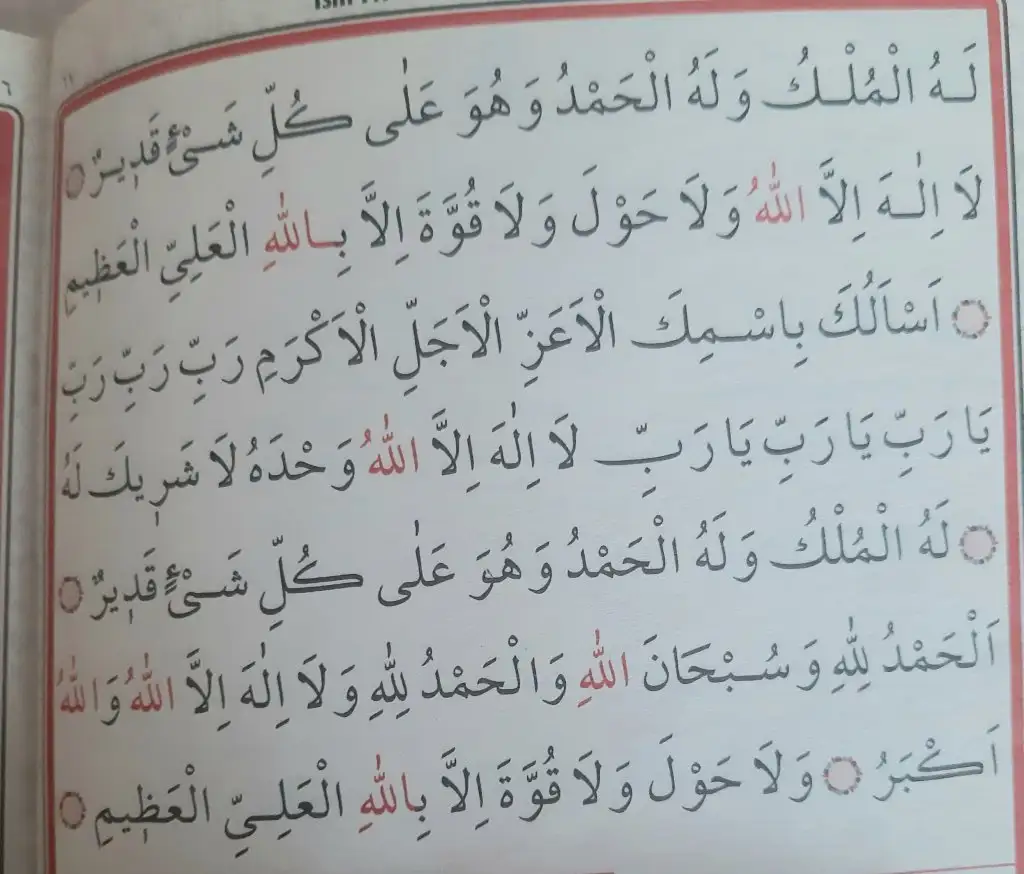 ١١
٦
لَـهُ الْمُلْـكُ وَ لَهُ الْحَمْدُ وَ هُوَ عَلٰى كُلِّ شَـىْءٍ قَدٖيـرٌ
لَا اِلٰـهَ اِلَّا اللّٰهُ وَ لَا حَوْلَ وَ لَا قُوَّةَ اِلَّا بِـاللّٰهِ الْعَلِيِّ الْعَظٖيمِ
اَسْاَلُكَ بِاسْـمِكَ الْاَعَزِّ الْاَجَلِّ الْاَكْرَمِ رَبِّ رَبِّ رَبِّ
يَا رَبِّ يَا رَبِّ يَا رَبِّ لَا اِلٰهَ اِلَّا اللّٰهُ وَحْدَهُ لَا شَرٖيكَ لَهُ
لَهُ الْمُلْكُ وَ لَهُ الْحَمْدُ وَ هُوَ عَلٰى كُلِّ شَـىْءٍ قَدٖيرٌ
اَلْحَمْدُ لِلّٰهِ وَ سُـبْحَانَ اللّٰهِ وَالْحَمْدُ لِلّٰهِ وَ لَا اِلٰهَ اِلَّا اللّٰهُ وَ اللّٰهُ
اَكْبَرُ وَلَا حَوْلَ وَ لَا قُوَّةَ اِلَّا بِاللّٰهِ الْعَلِـيِّ الْعَظٖيمِ